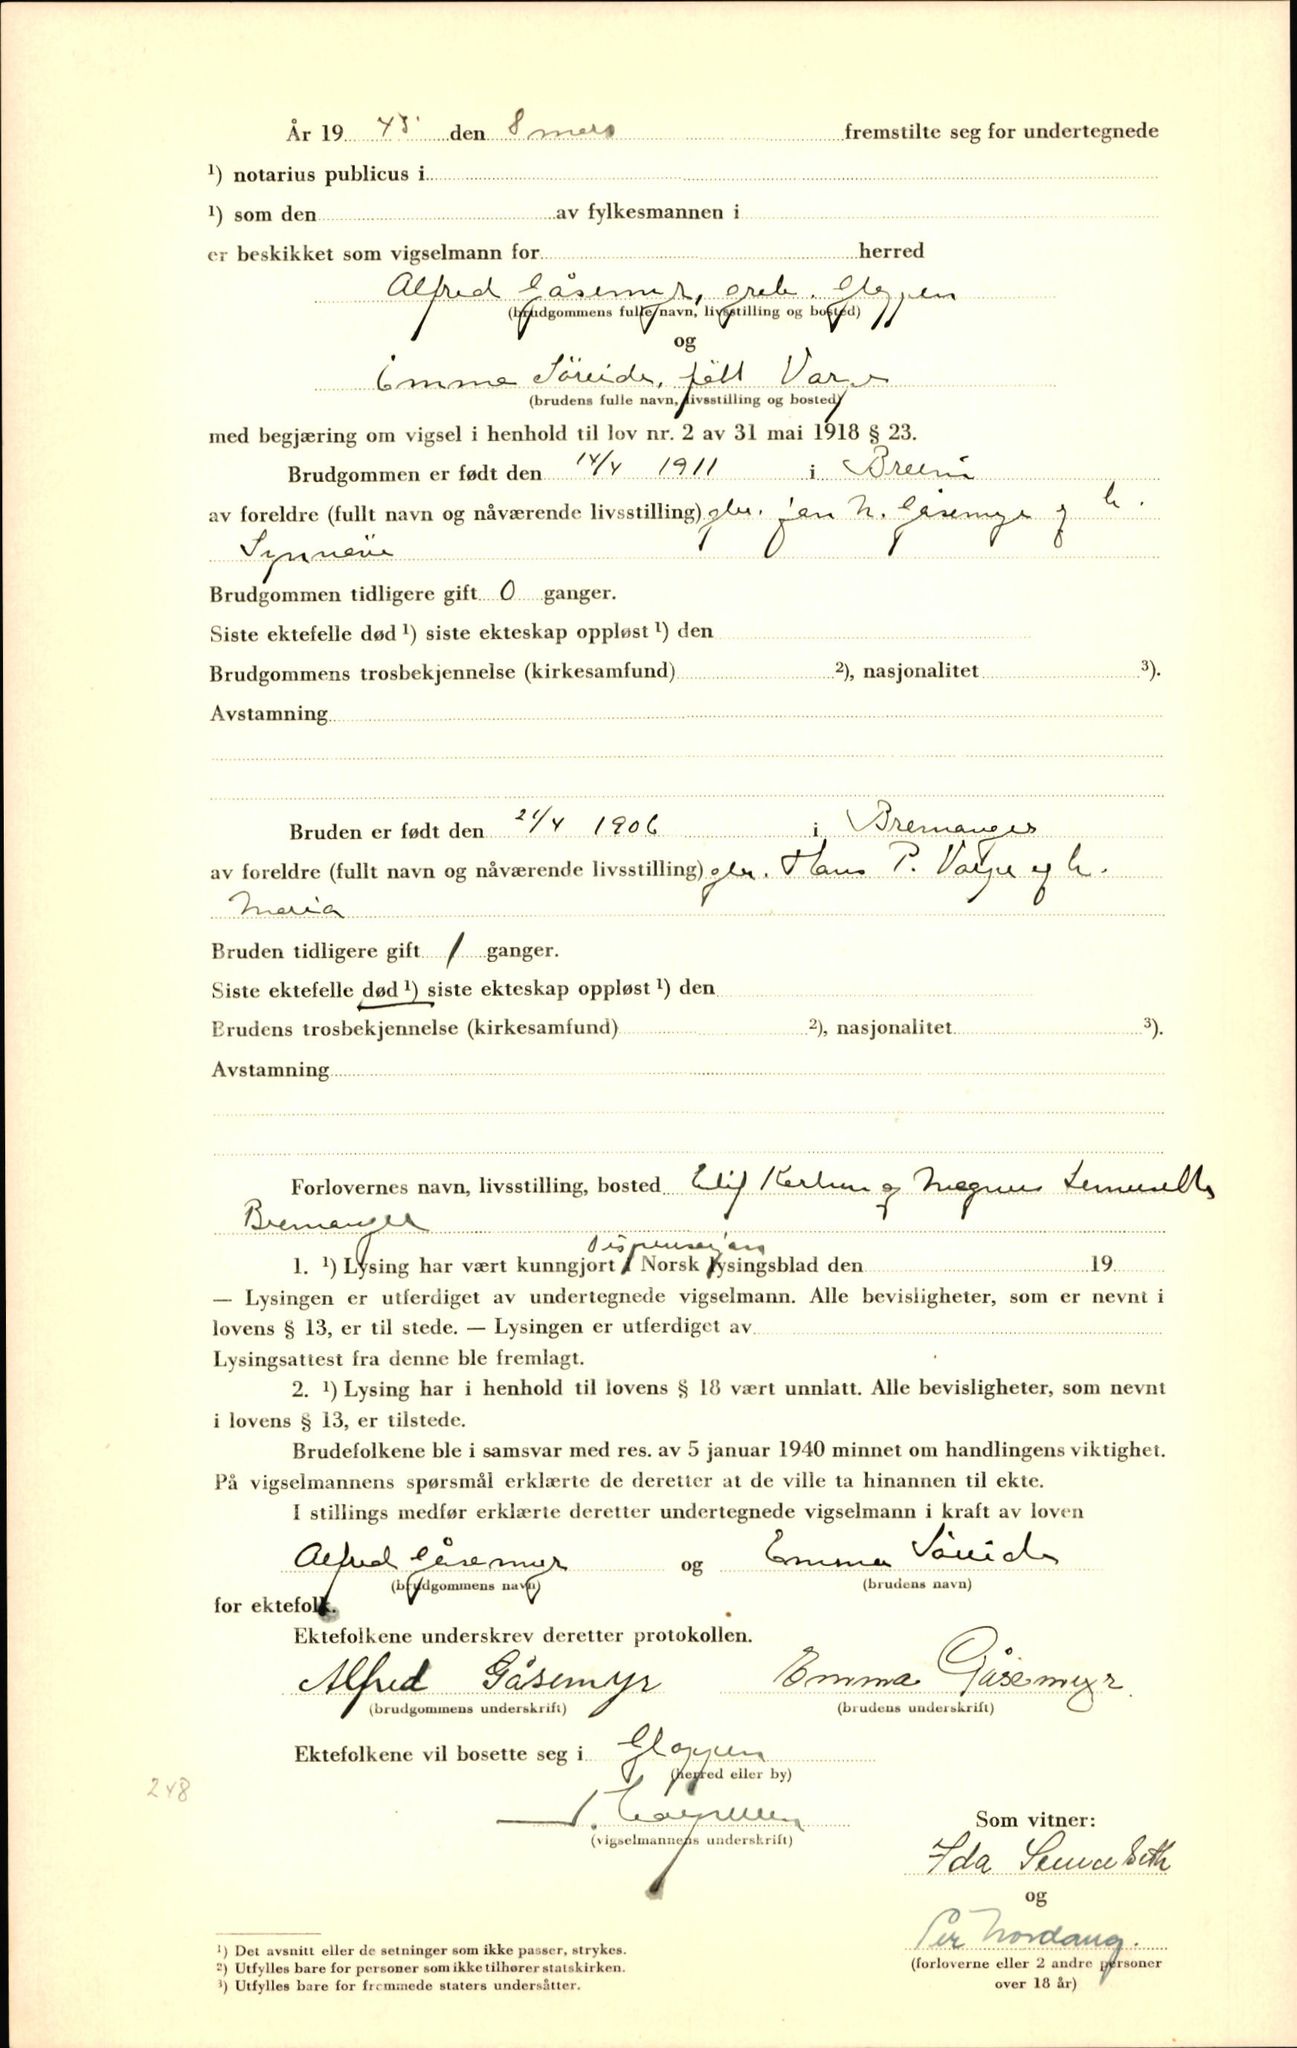 År 19 45 den 8 mars fremstilte seg for undertegnede
¹) notarius publicus i
¹) som den av fylkesmannen i
er beskikket som vigselmann for herred
Alfred Gåsemyr, arb. Gloppen
(brudgommens fulle navn, livsstilling og bosted)
og
Emma Söreide, født Varpe
(brudens fulle navn, livsstilling og bosted)
med begjæring om vigsel i henhold til lov nr. 2 av 31 mai 1918 § 23.
Brudgommen er født den 14/4 1911 i Breim
av foreldre (fullt navn og nåværende livsstilling) gbr. Jon N. Gåsemyr og h.
Synnöve
Brudgommen tidligere gift 0 ganger.
Siste ektefelle død ¹) siste ekteskap oppløst ¹) den
Brudgommens trosbekjennelse (kirkesamfund) ²), nasjonalitet ³).
Avstamning
Bruden er født den 21/4 1906 i Bremanger
av foreldre (fullt navn og nåværende livsstilling) gbr. Hans P. Varpe og h.
Maria
Bruden tidligere gift 1 ganger.
Siste ektefelle død ¹) siste ekteskap oppløst ¹) den
Brudens trosbekjennelse (kirkesamfund) ²), nasjonalitet ³).
Avstamning
Forlovernes navn, livsstilling, bosted og Magnus
Bremanger
Dispensasjon
1. ¹) Lysing har vært kunngjort i Norsk lysingsblad den 19
— Lysingen er utferdiget av undertegnede vigselmann. Alle bevisligheter, som er nevnt i
lovens § 13, er til stede. — Lysingen er utferdiget av
Lysingsattest fra denne ble fremlagt.
2. ¹) Lysing har i henhold til lovens § 18 vært unnlatt. Alle bevisligheter, som nevnt
i lovens § 13, er tilstede.
Brudefolkene ble i samsvar med res. av 5 januar 1940 minnet om handlingens viktighet.
På vigselmannens spørsmål erklærte de deretter at de ville ta hinannen til ekte.
I stillings medfør erklærte deretter undertegnede vigselmann i kraft av loven
Alfred Gåsemyr og Emma Söreide
(brudgommens navn) (brudens navn)
for ektefolk.
Ektefolkene underskrev deretter protokollen.
Alfred Gåsemyr Emma Gåsemyr.
(brudgommens underskrift) (brudens underskrift)
Ektefolkene vil bosette seg i Gloppen
(herred eller by)
248
(vigselmannens underskrift)
Som vitner:
Ida
og
Per Nordang.
(forloverne eller 2 andre personer
over 18 år)
¹) Det avsnitt eller de setninger som ikke passer, strykes.
²) Utfylles bare for personer som ikke tilhører statskirken.
³) Utfylles bare for fremmede staters undersåtter.